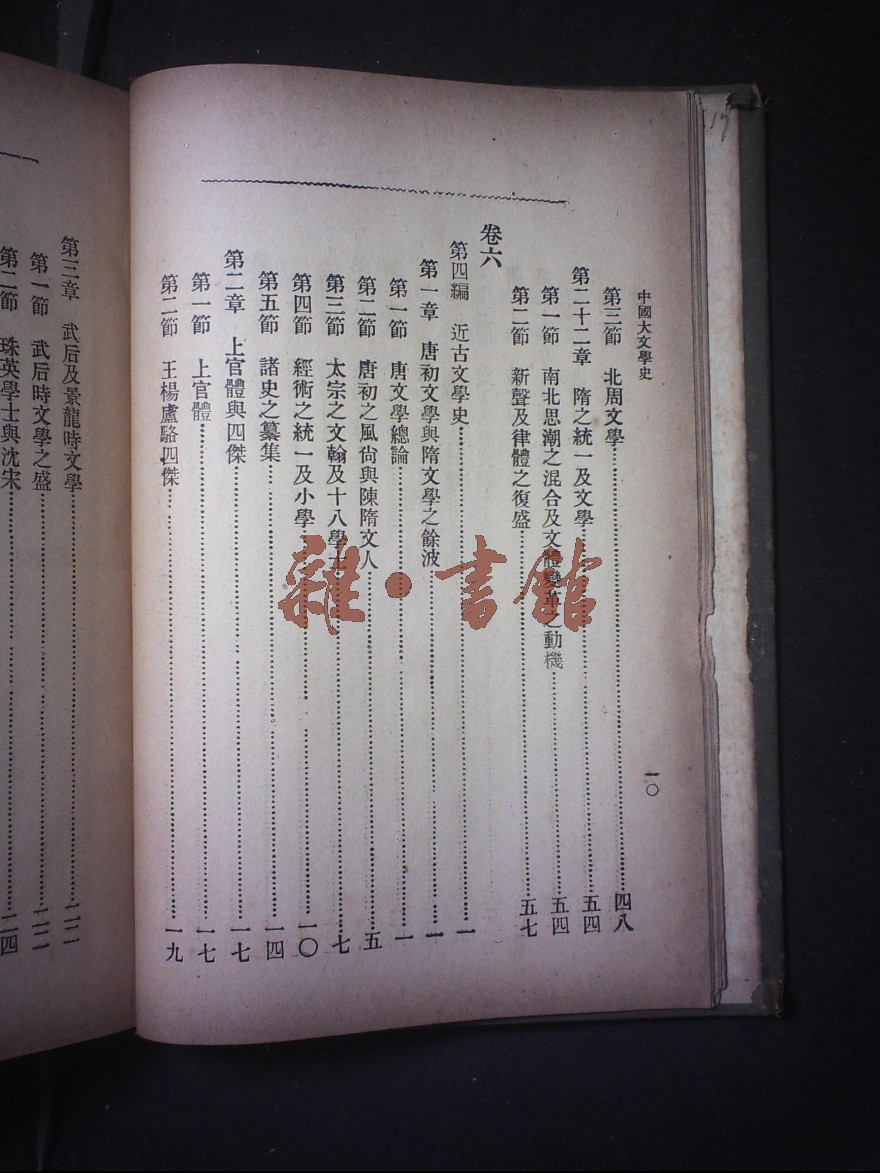 中國大文學史
一〇
第三節 北周文學 四八
第二十二章 隋之統一及文學 五四
第一節 南北思潮之混合及文體變革之動機 五四
第二節 新聲及律體之復盛 五七
卷六
第四編 近古文學史 一
第一章 唐初文學與隋文學之餘波 一
第一節 唐文學總論 一
第二節 唐初之風尙與陳隋文人 五
第三節 太宗之文翰及十八學士 七
第四節 經術之統一及小學 一〇
第五節 諸史之纂集 一四
第二章 上官體與四傑 一七
第一節 上官體 一七
第二節 王楊盧駱四傑 一九
第三章 武后及景龍時文學 二二
第一節 武后時文學之盛 二二
第二節 珠英學士與沈宋 二四
雜·書館